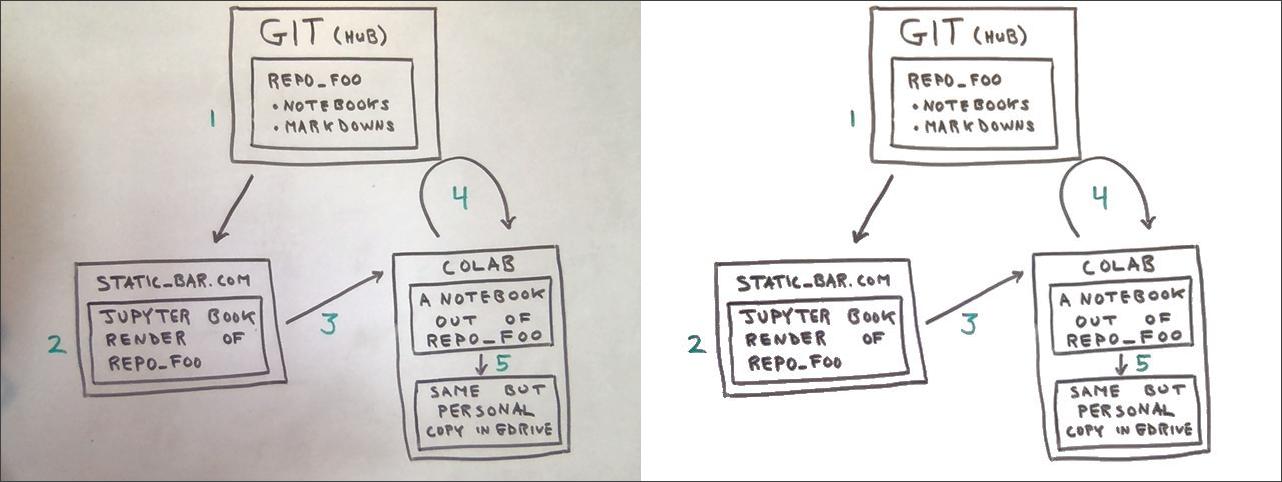 GIT (HUB)
REPO_FOO
• NOTEBOOKS
• MARKDOWNS
1
4
STATIC_BAR.COM
JUPYTER BOOK
RENDER OF
REPO_FOO
2
3
COLAB
A NOTEBOOK
OUT OF
REPO_FOO
5
SAME BUT
PERSONAL
COPY IN GDRIVE
GIT (HUB)
REPO_FOO
• NOTEBOOKS
• MARKDOWNS
1
4
STATIC_BAR.COM
JUPYTER BOOK
RENDER OF
REPO_FOO
2
3
COLAB
A NOTEBOOK
OUT OF
REPO_FOO
5
SAME BUT
PERSONAL
COPY IN GDRIVE